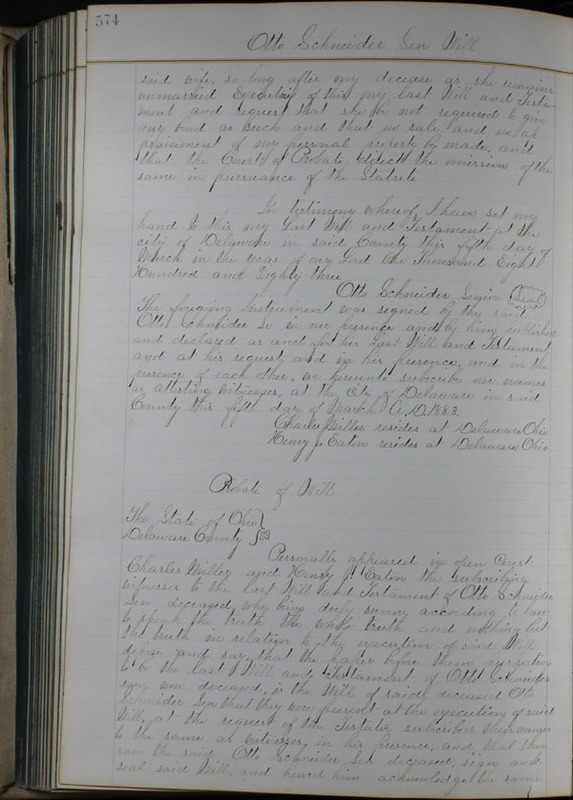 574
Otto Schneider Sen Will
said wife, so long after my decease as she remains
unmarried Executrix of this my last Will and Testa
ment and request that she be not required to give
any bond as such and that no sale and no ap
praisement of my personal property by made, and
that the Court of Probate, direct the omission of the
same in pursuance of the Statute
In testimony whereof, I have set my
hand to this my Last Will and Testament at the
city of Delaware in said County this fifth day of
March in the year of our Lord One Thousand Eight
Hundred and Eighty three
Otto Schneider Senior (seal)
The foregoing Instrument was signed by the said
Otto Schneider Se in our presence and by him published
and declared as and for his Last Will and Testament
and at his request and in his presence, and in the
presence of each other, we hereunto subscribe our names
as attesting witnesses, at the City of Delaware in said
County this fifth day of March A.D. 1883.
Charles Miller resides at Delaware Ohio
Henry J. Eaton resides at Delaware Ohio
Probate of Will
The State of Ohio
Delaware County } SS
Personally appeared in open Court
Charles Miller and Henry J. Eaton the subscribing
witnesses to the last Will and Testament of Otto Schneider
Sen deceased, who being duly sworn according to law
to speak the truth the whole truth and nothing but
the truth in relation to the execution of said Will
depose and say, that the paper before them purporting
to be the last Will and Testament of Otto Schneider
sen deceased, is the Will of said deceased Otto
Schneider Sen that they were present at the execution of said
Will, at the request of the Testator subscribed their names
to the same as witnesses, in his presence, and that they
saw the said Otto Schneider Sen deceased, sign and
seal said Will, and heard him acknowledge the same